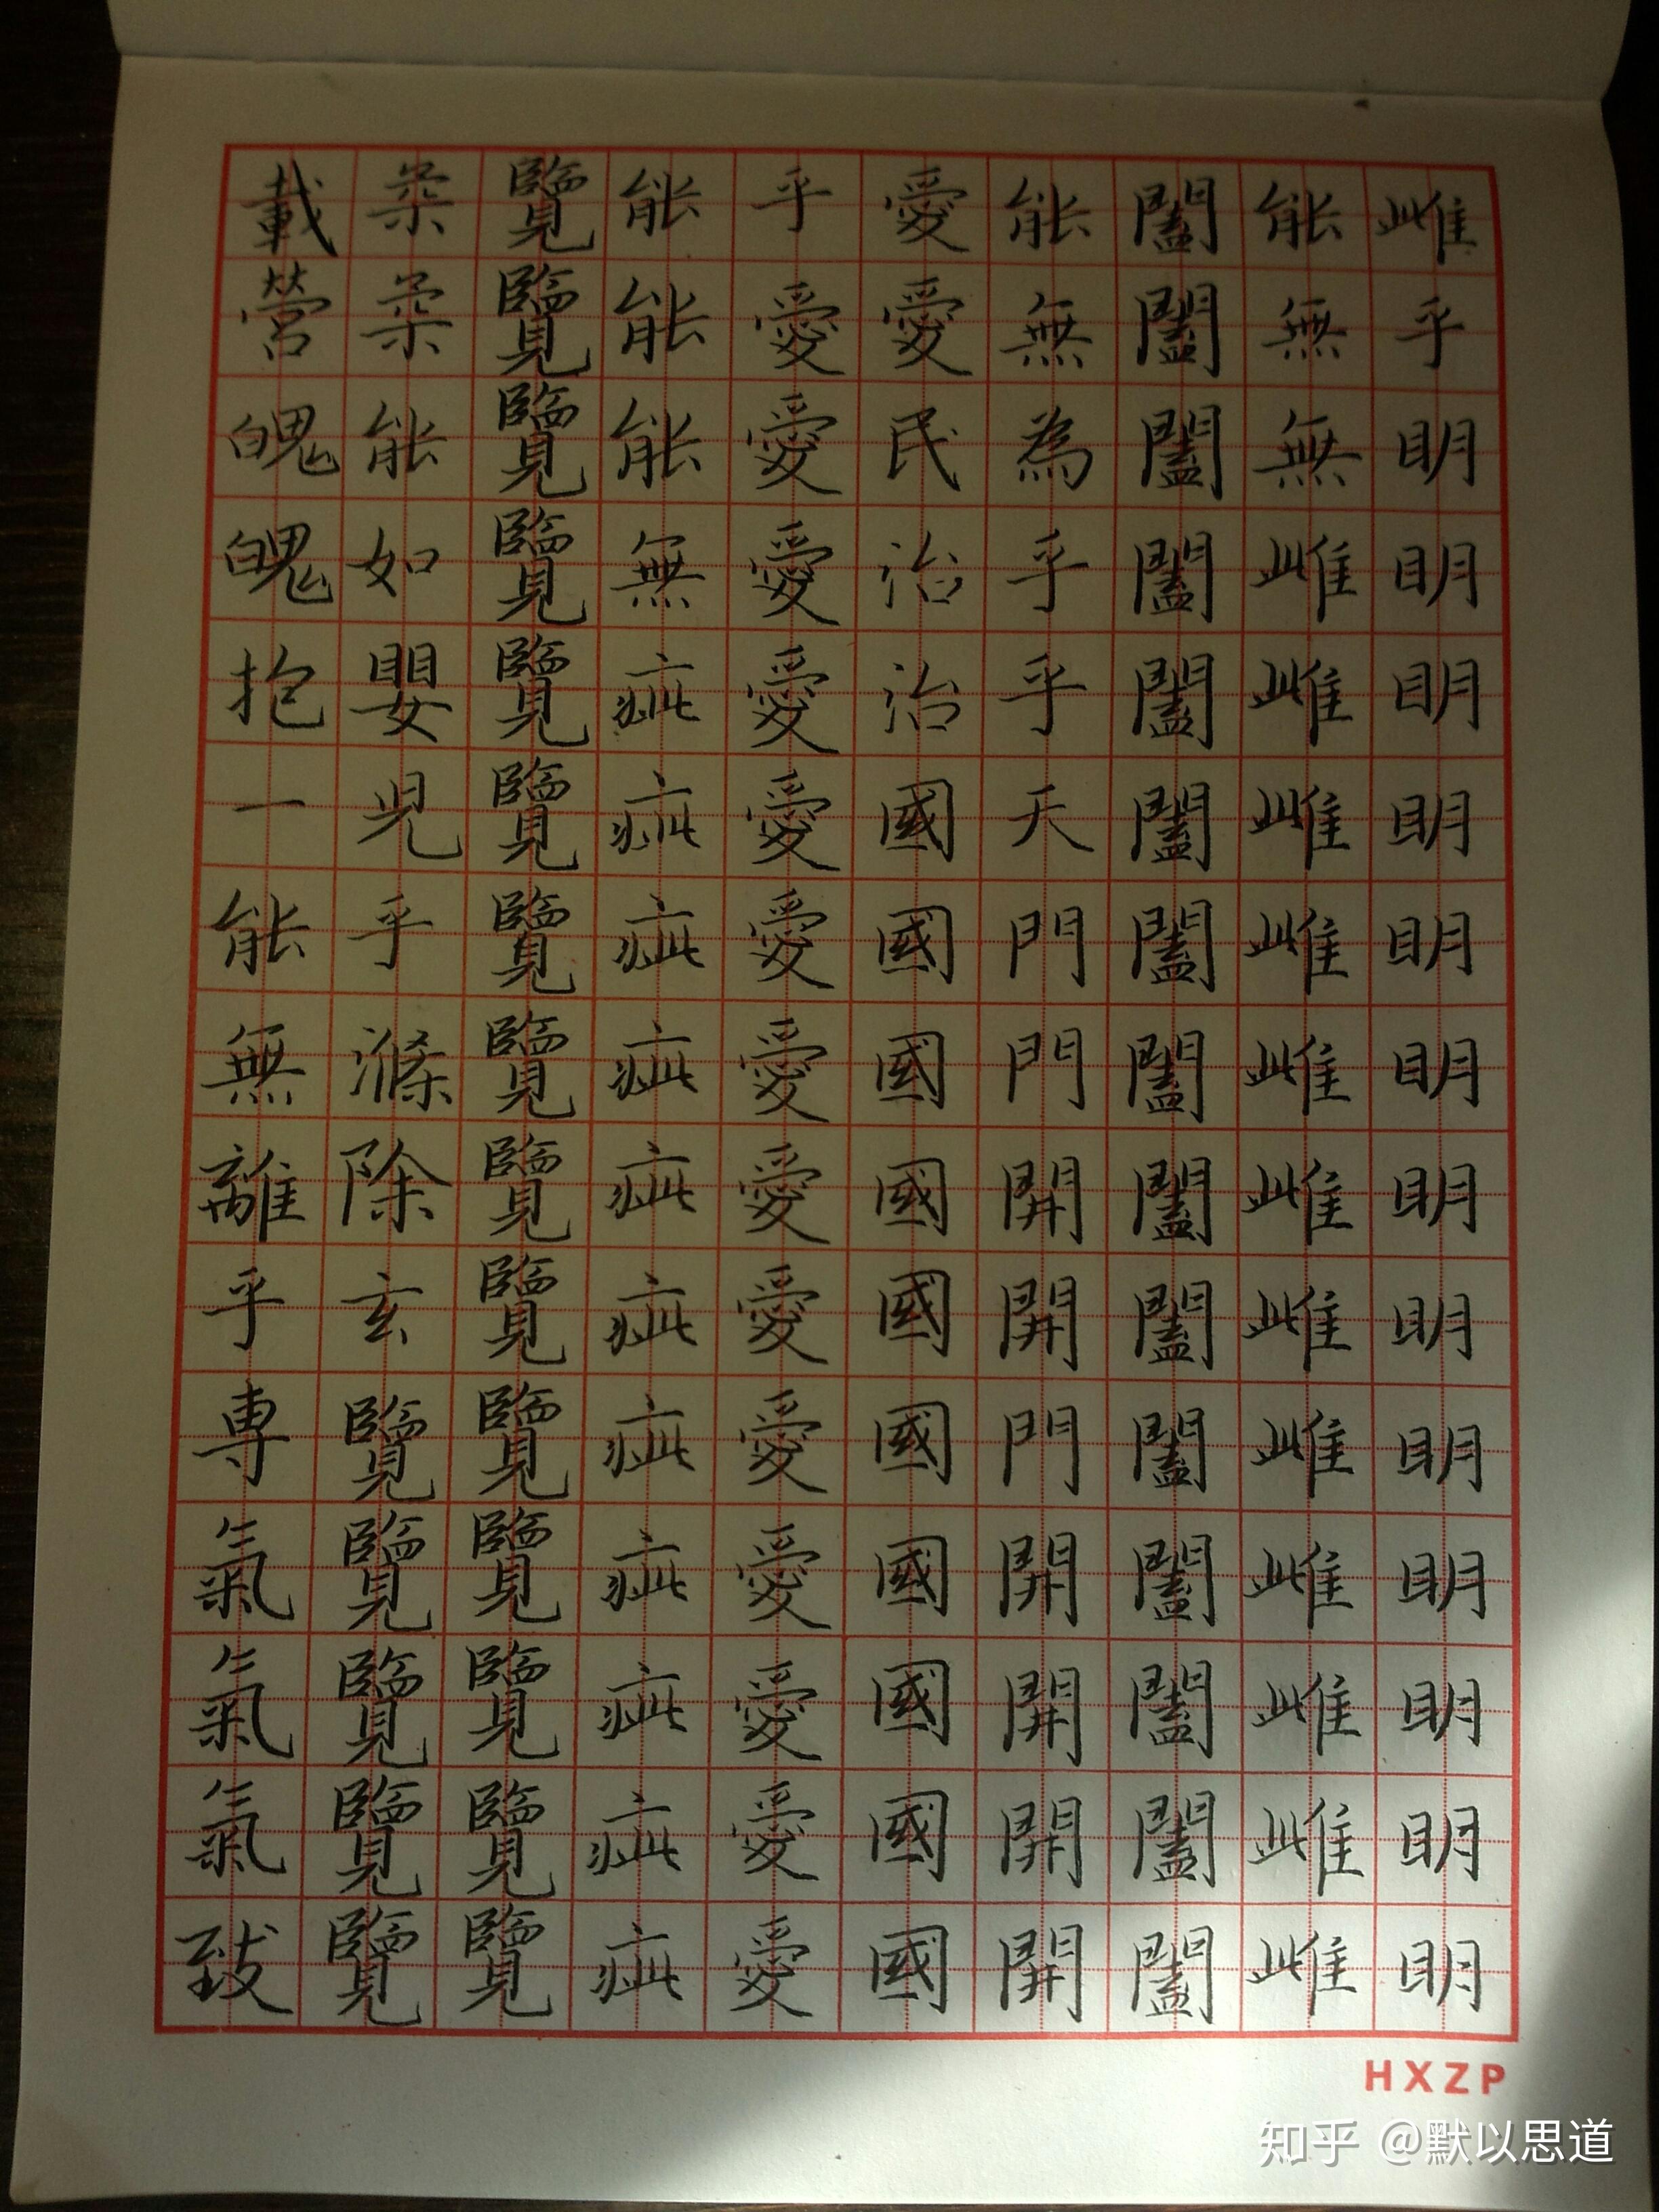 載營魄魄抱一能無離乎專氣氣氣致
柔柔能如嬰兒乎滌除玄覽覽覽覽覽
覽覽覽覽覽覽覽覽覽覽覽覽覽覽覽
能能能無疵疵疵疵疵疵疵疵疵疵疵
乎愛愛愛愛愛愛愛愛愛愛愛愛愛愛
愛愛民治治國國國國國國國國國國
能無為乎乎天門門開開門開開開開
闔闔闔闔闔闔闔闔闔闔闔闔闔闔闔
能無無雌雌雌雌雌雌雌雌雌雌雌雌
雌乎明明明明明明明明明明明明明
HXZP
知乎 @默以思道